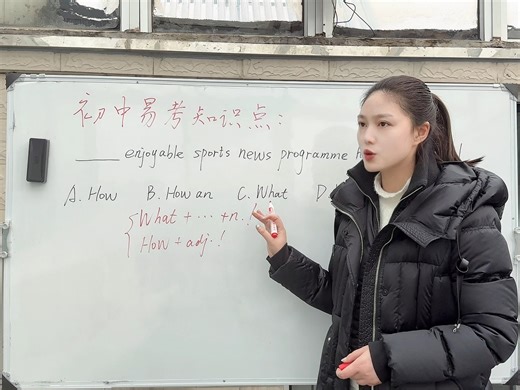 初中易考知识点:
____ enjoyable sports news programme
A. How B. How an C. What D
What + ··· + n. !
How + adj. !